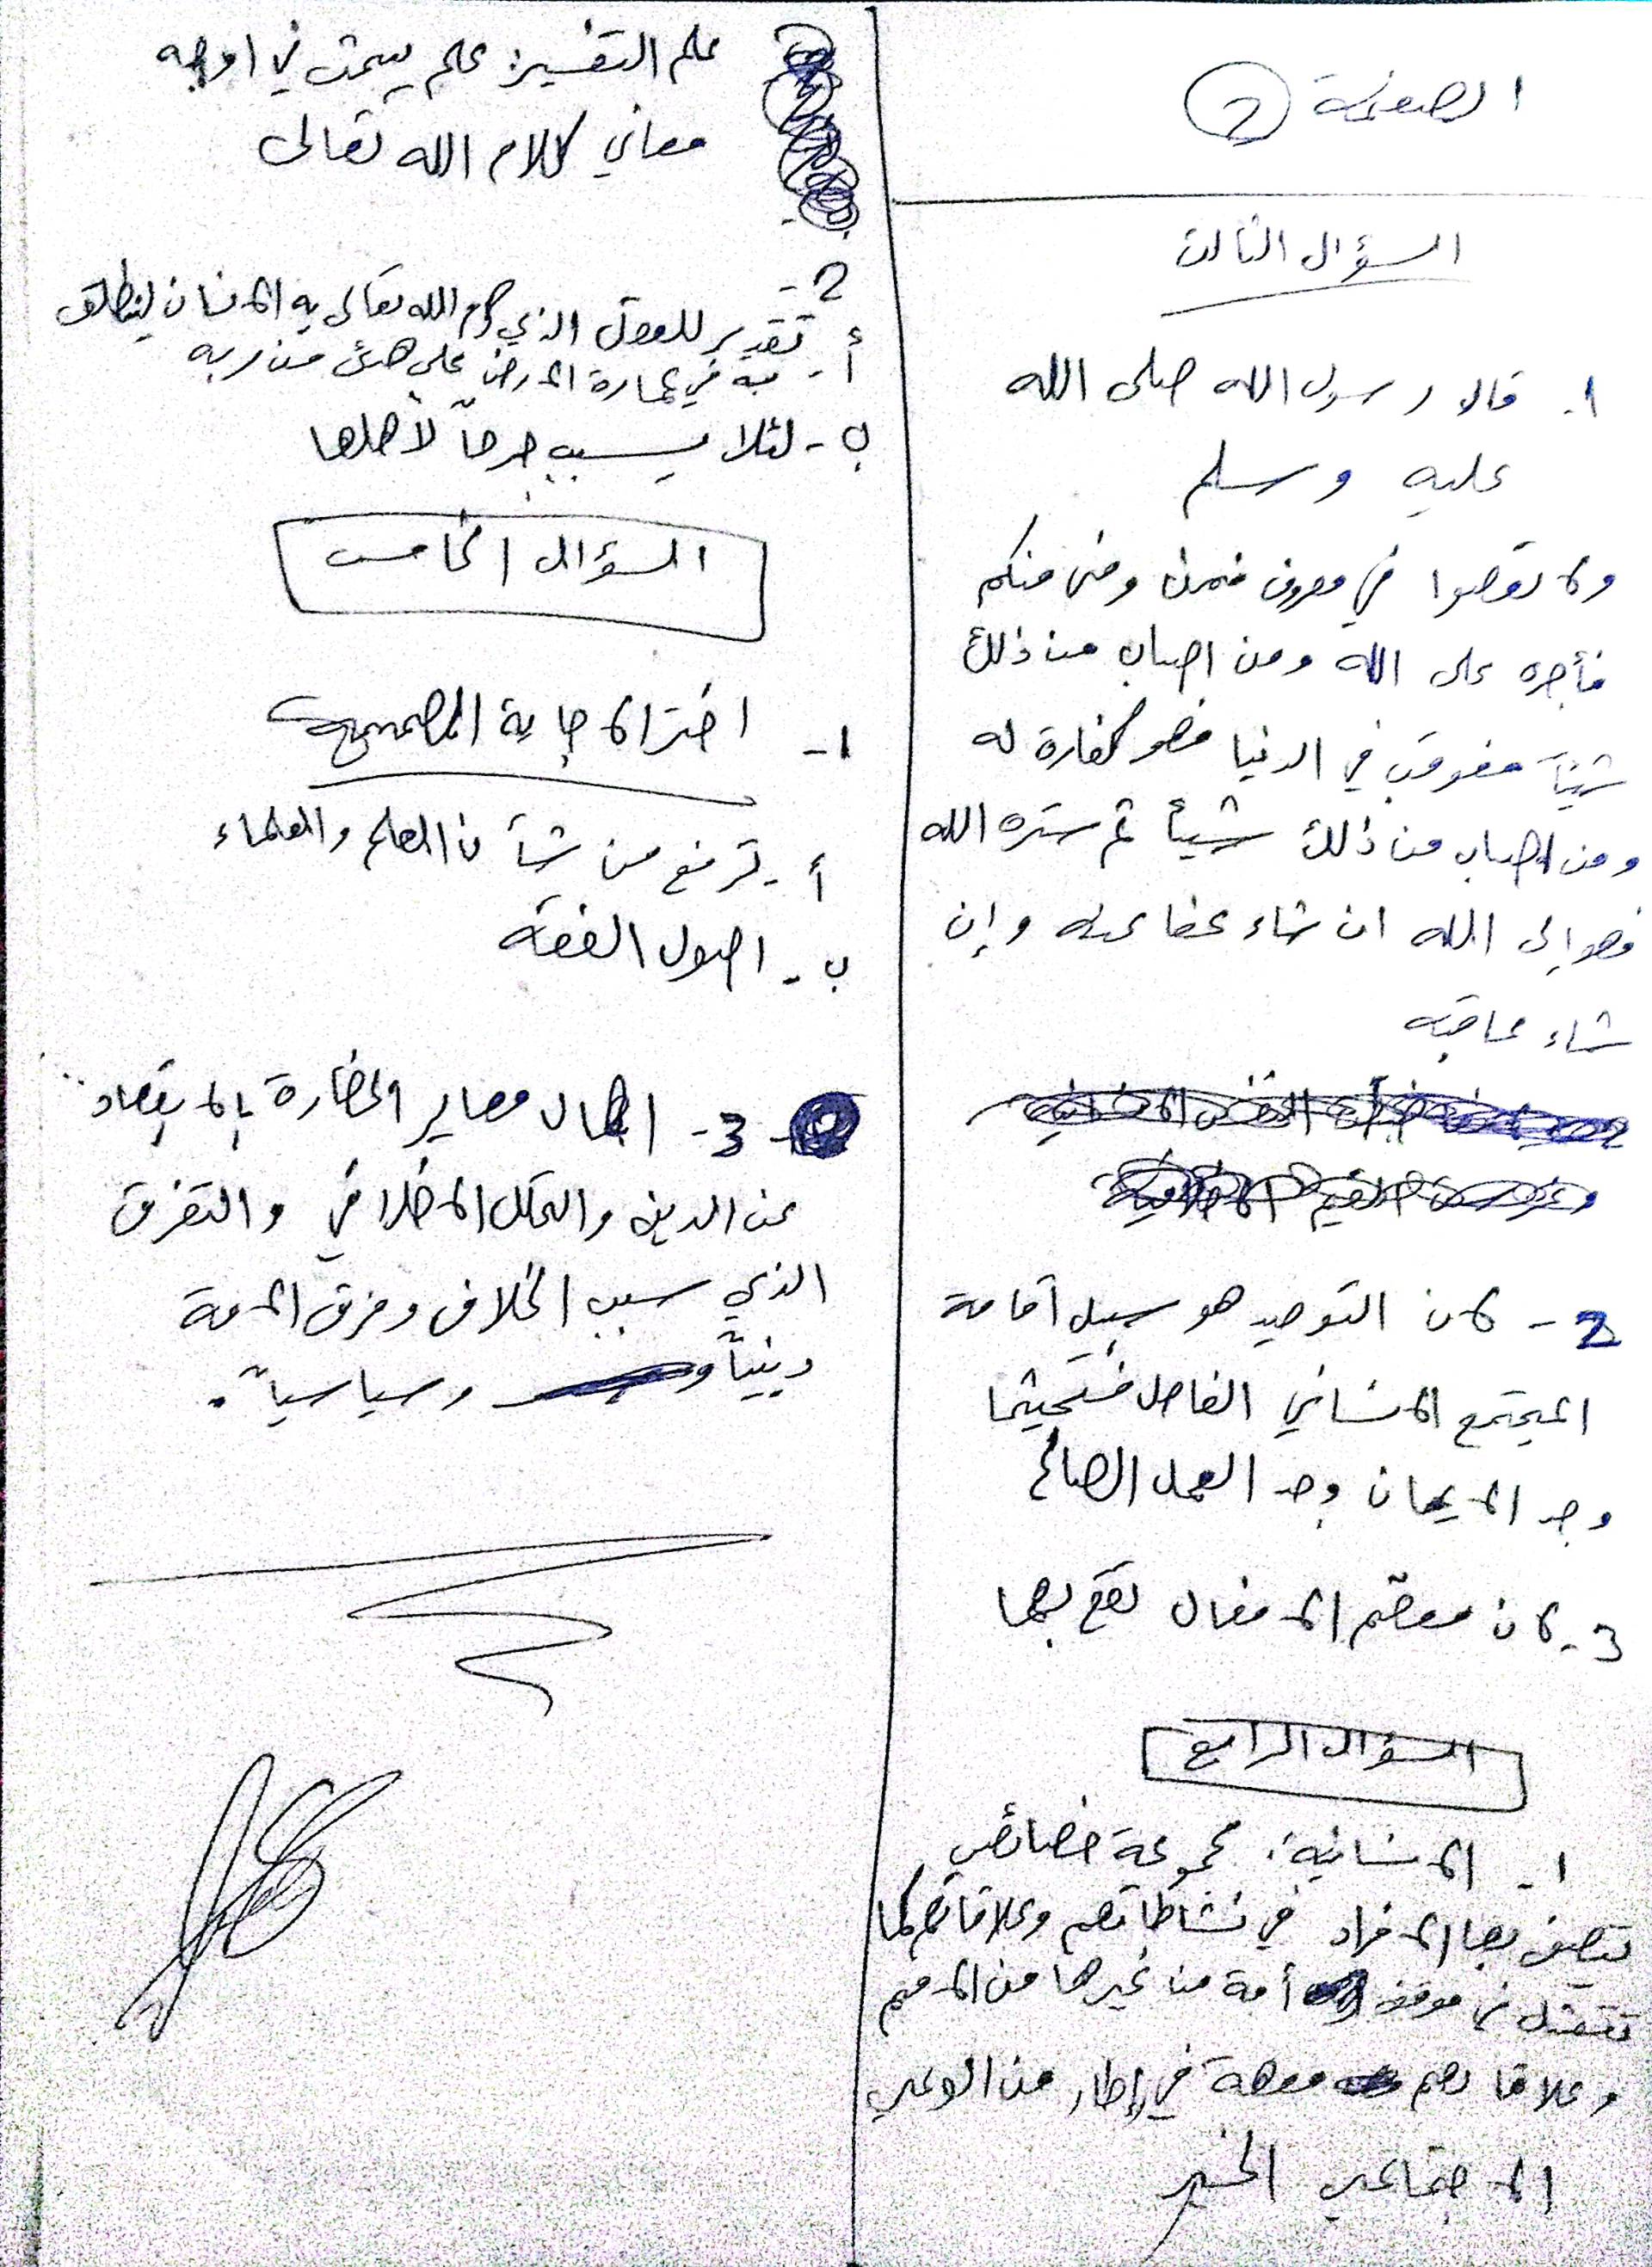 الصفحة 2
السؤال الثالث
1- قال رسول الله صلى الله
عليه وسلم
ولا تعصوا في معروف فمن وفى منكم
فأجره على الله ومن اصاب من ذلك
شيئاً فعوقب في الدنيا فهو كفارة له
ومن اصاب من ذلك شيئاً ثم ستره الله
فهو إلى الله ان شاء عفا عنه وإن
شاء عاقبه
2- كان التوحيد هو سبيل أقامة
المجتمع الانساني الفاضل فحيثما
وجد الايمان وجد العمل الصالح
3- كان معظم الافعال تقع بهما
السؤال الرابع
1- الانسانية: مجموعة خصائص
يتصف بها الافراد في نشاطاتهم وعلاقاتهم كما
تتمثل في موقف أمة من غيرها من الامم
وعلاقاتهم معهة في إطار من الوعي
الاجتماعي الخير
علم التفسير: علم يبحث في اوجه
معاني كلام الله تعالى
2-
أ- تقدير للعقل الذي كرم الله تعالى به الانسان لينطلق
به في عمارة الارض على هدى من ربه
ب- لئلا يسبب حرجاً لأهلها
السؤال الخامس
1- اختر الاجابة الصحيحة
أ- ترفع من شأن العلم والعلماء
ب- اصول الفقه
3- اهمال معايير الحضارة بالابتعاد
عن الدين والتحلل الاخلاقي والتفرق
الذي سبب الخلاف وفرق الامة
دينياً وسياسياً.